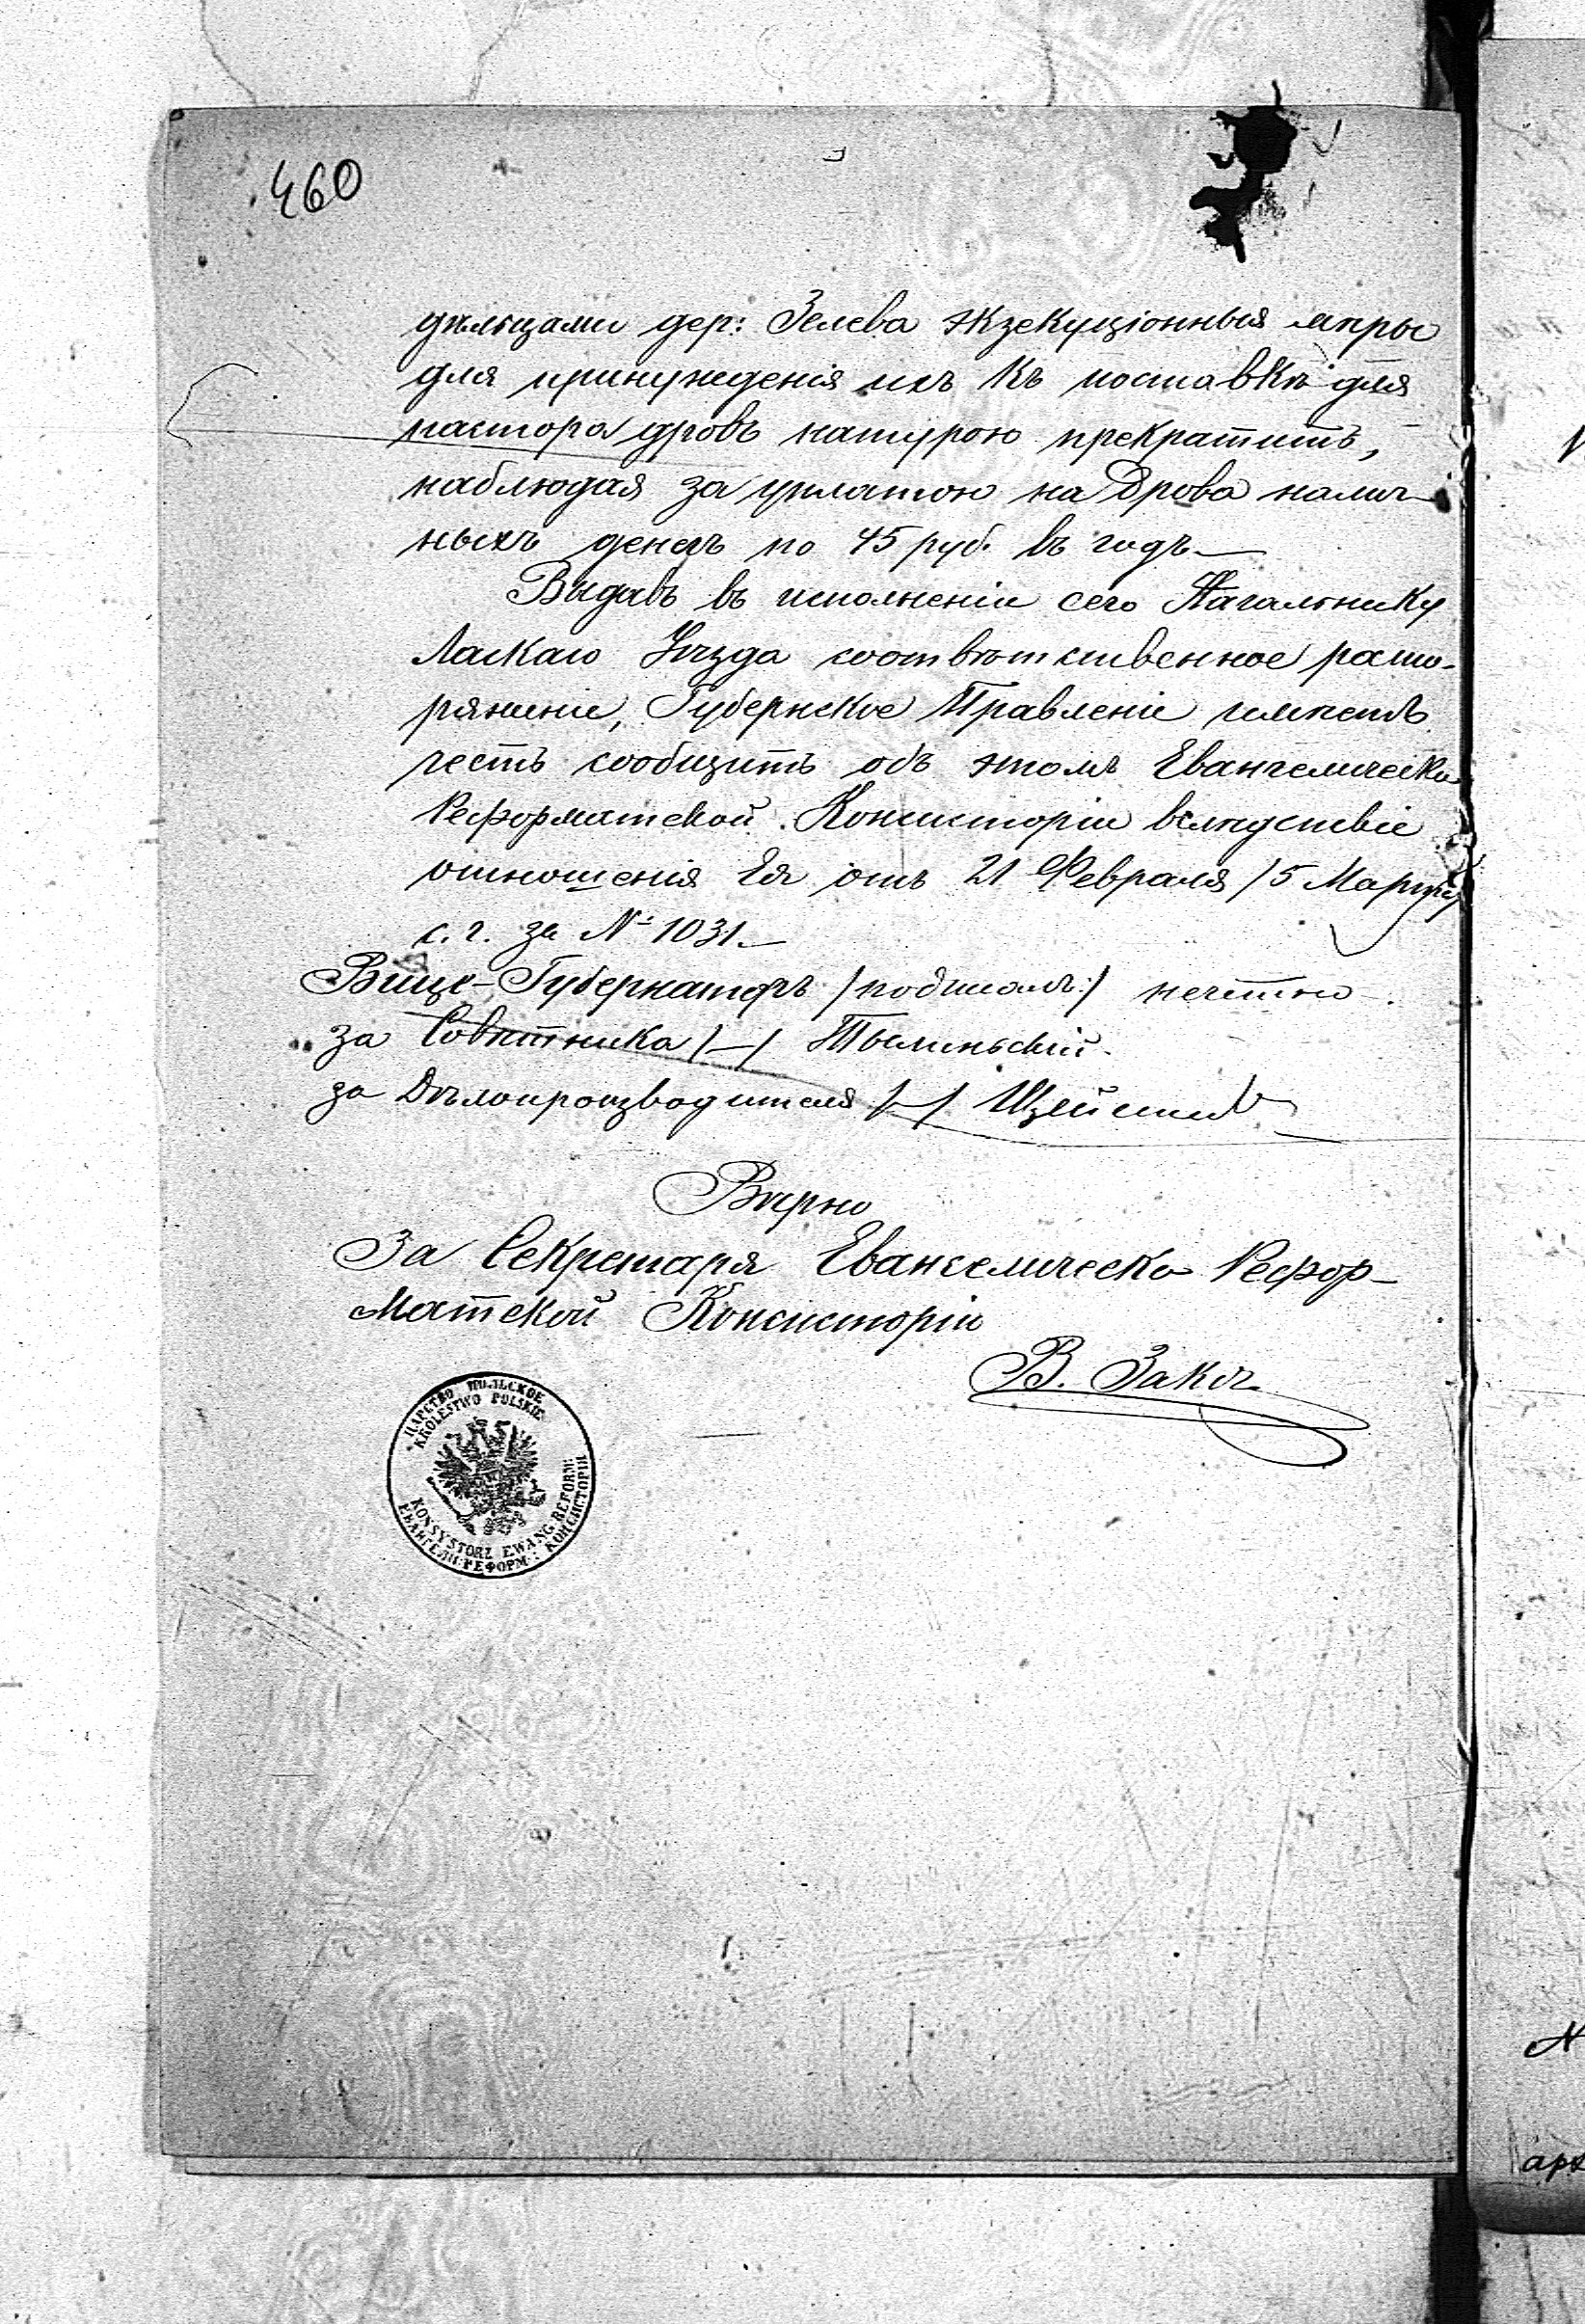 460
дѣльцами дер: Зелева экзекуціонныя мѣры
для принужденія ихъ къ поставкѣ для
пастора дровъ натурою прекратить,
наблюдая за уплатою на дрова налич-
ныхъ денегъ по 45 руб. въ годъ.—
Выдавъ въ исполненіи сего Начальнику
Ласкаго Уѣзда соотвѣтственное распо-
ряженіе, Губернское Правленіе имѣетъ
честь сообщить объ этомъ Евангелическо
Реформатской Консисторіи вслѣдствіе
отношенія Ея отъ 21 Февраля /5 Марта/
с. г. за № 1031.—
Вице-Губернаторъ /подписалъ:/ нечетко.
за Совѣтника /—/
за Дѣлопроизводителя /—/
Вѣрно
За Секретаря Евангелическо Рефор-
матской Консисторіи
В. Закъ
ЦАРСТВО ПОЛЬСКОЕ
KRÓLESTWO POLSKIE
KONSYSTORZ EWANG. REFORM:
ЕВАНГЕЛИ: РЕФОРМ: КОНСИСТОРІЯ